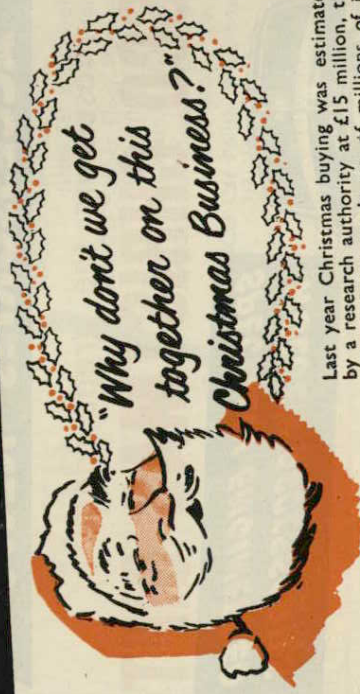 "Why don't we get
together on this
Christmas Business?"
Last year Christmas buying was estimate
by a research authority at £15 million, t
millions of